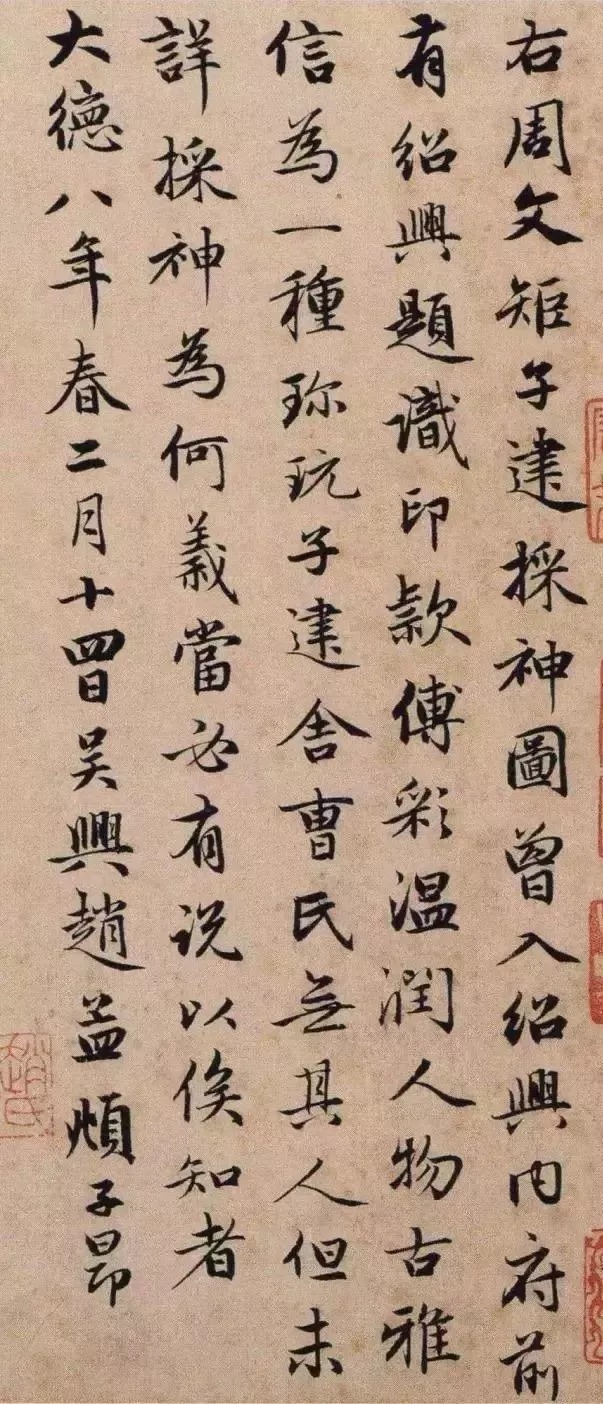 右周文矩子建採神圖曾入紹興內府前
有紹興題識印款傅彩温潤人物古雅
信為一種珎玩子建舍曹氏無其人但未
詳採神為何義當必有说以俟知者
大德八年春二月十四日吴興趙孟頫子昂
趙氏